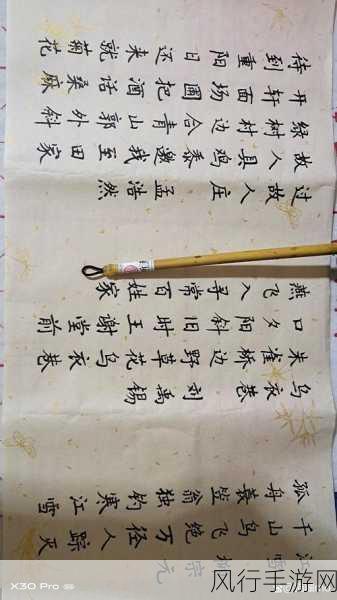 过故人庄 孟浩然
故人具鸡黍邀我至田家
绿树村边合青山郭外斜
开轩面场圃把酒话桑麻
待到重阳日还来就菊花
乌衣巷 刘禹锡
朱雀桥边野草花乌衣巷
口夕阳斜旧时王谢堂前
燕飞入寻常百姓家
江雪 宗元
千山鸟飞绝万径人踪灭
孤舟蓑笠翁独钓寒江雪
X30 Pro 5G
风行手游网